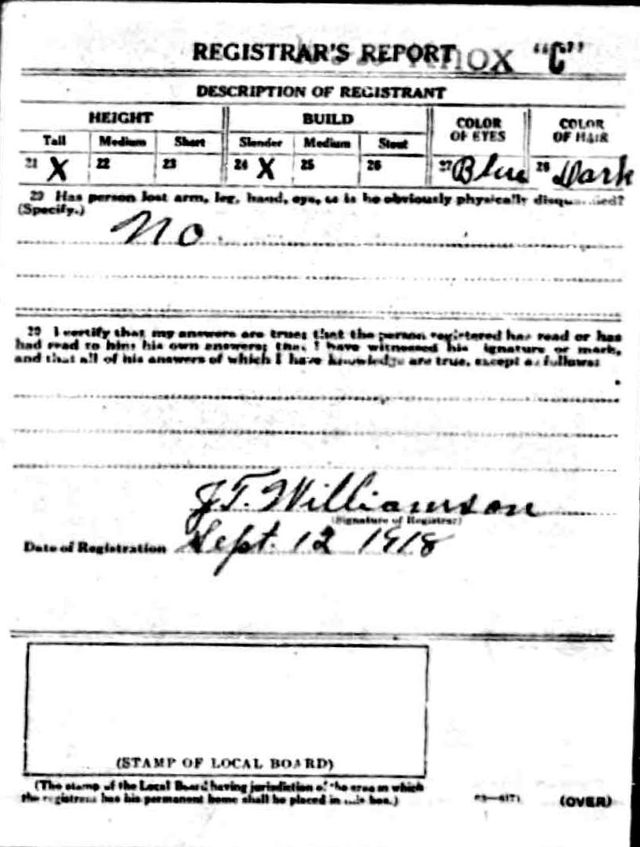 REGISTRAR'S REPORT nox "C"
DESCRIPTION OF REGISTRANT
HEIGHT BUILD COLOR OF EYES COLOR OF HAIR
Tall Medium Short Slender Medium Stout
21 X 22 23 24 X 25 26 27 Blue 28 Dark
29 Has person lost arm, leg, hand, eye, or is he obviously physically
(Specify.)
No
30 I certify that my answers are true; that the person registered has read or has
had read to him his own answers; that I have witnessed his signature or mark,
and that all of his answers of which I have knowledge are true, except as follows:
J.T. Williamson
(Signature of Registrar)
Date of Registration Sept. 12 1918
(STAMP OF LOCAL BOARD)
(The stamp of the Local Board having jurisdiction of the area in which
the registrant has his permanent home shall be placed in this box.)
(OVER)